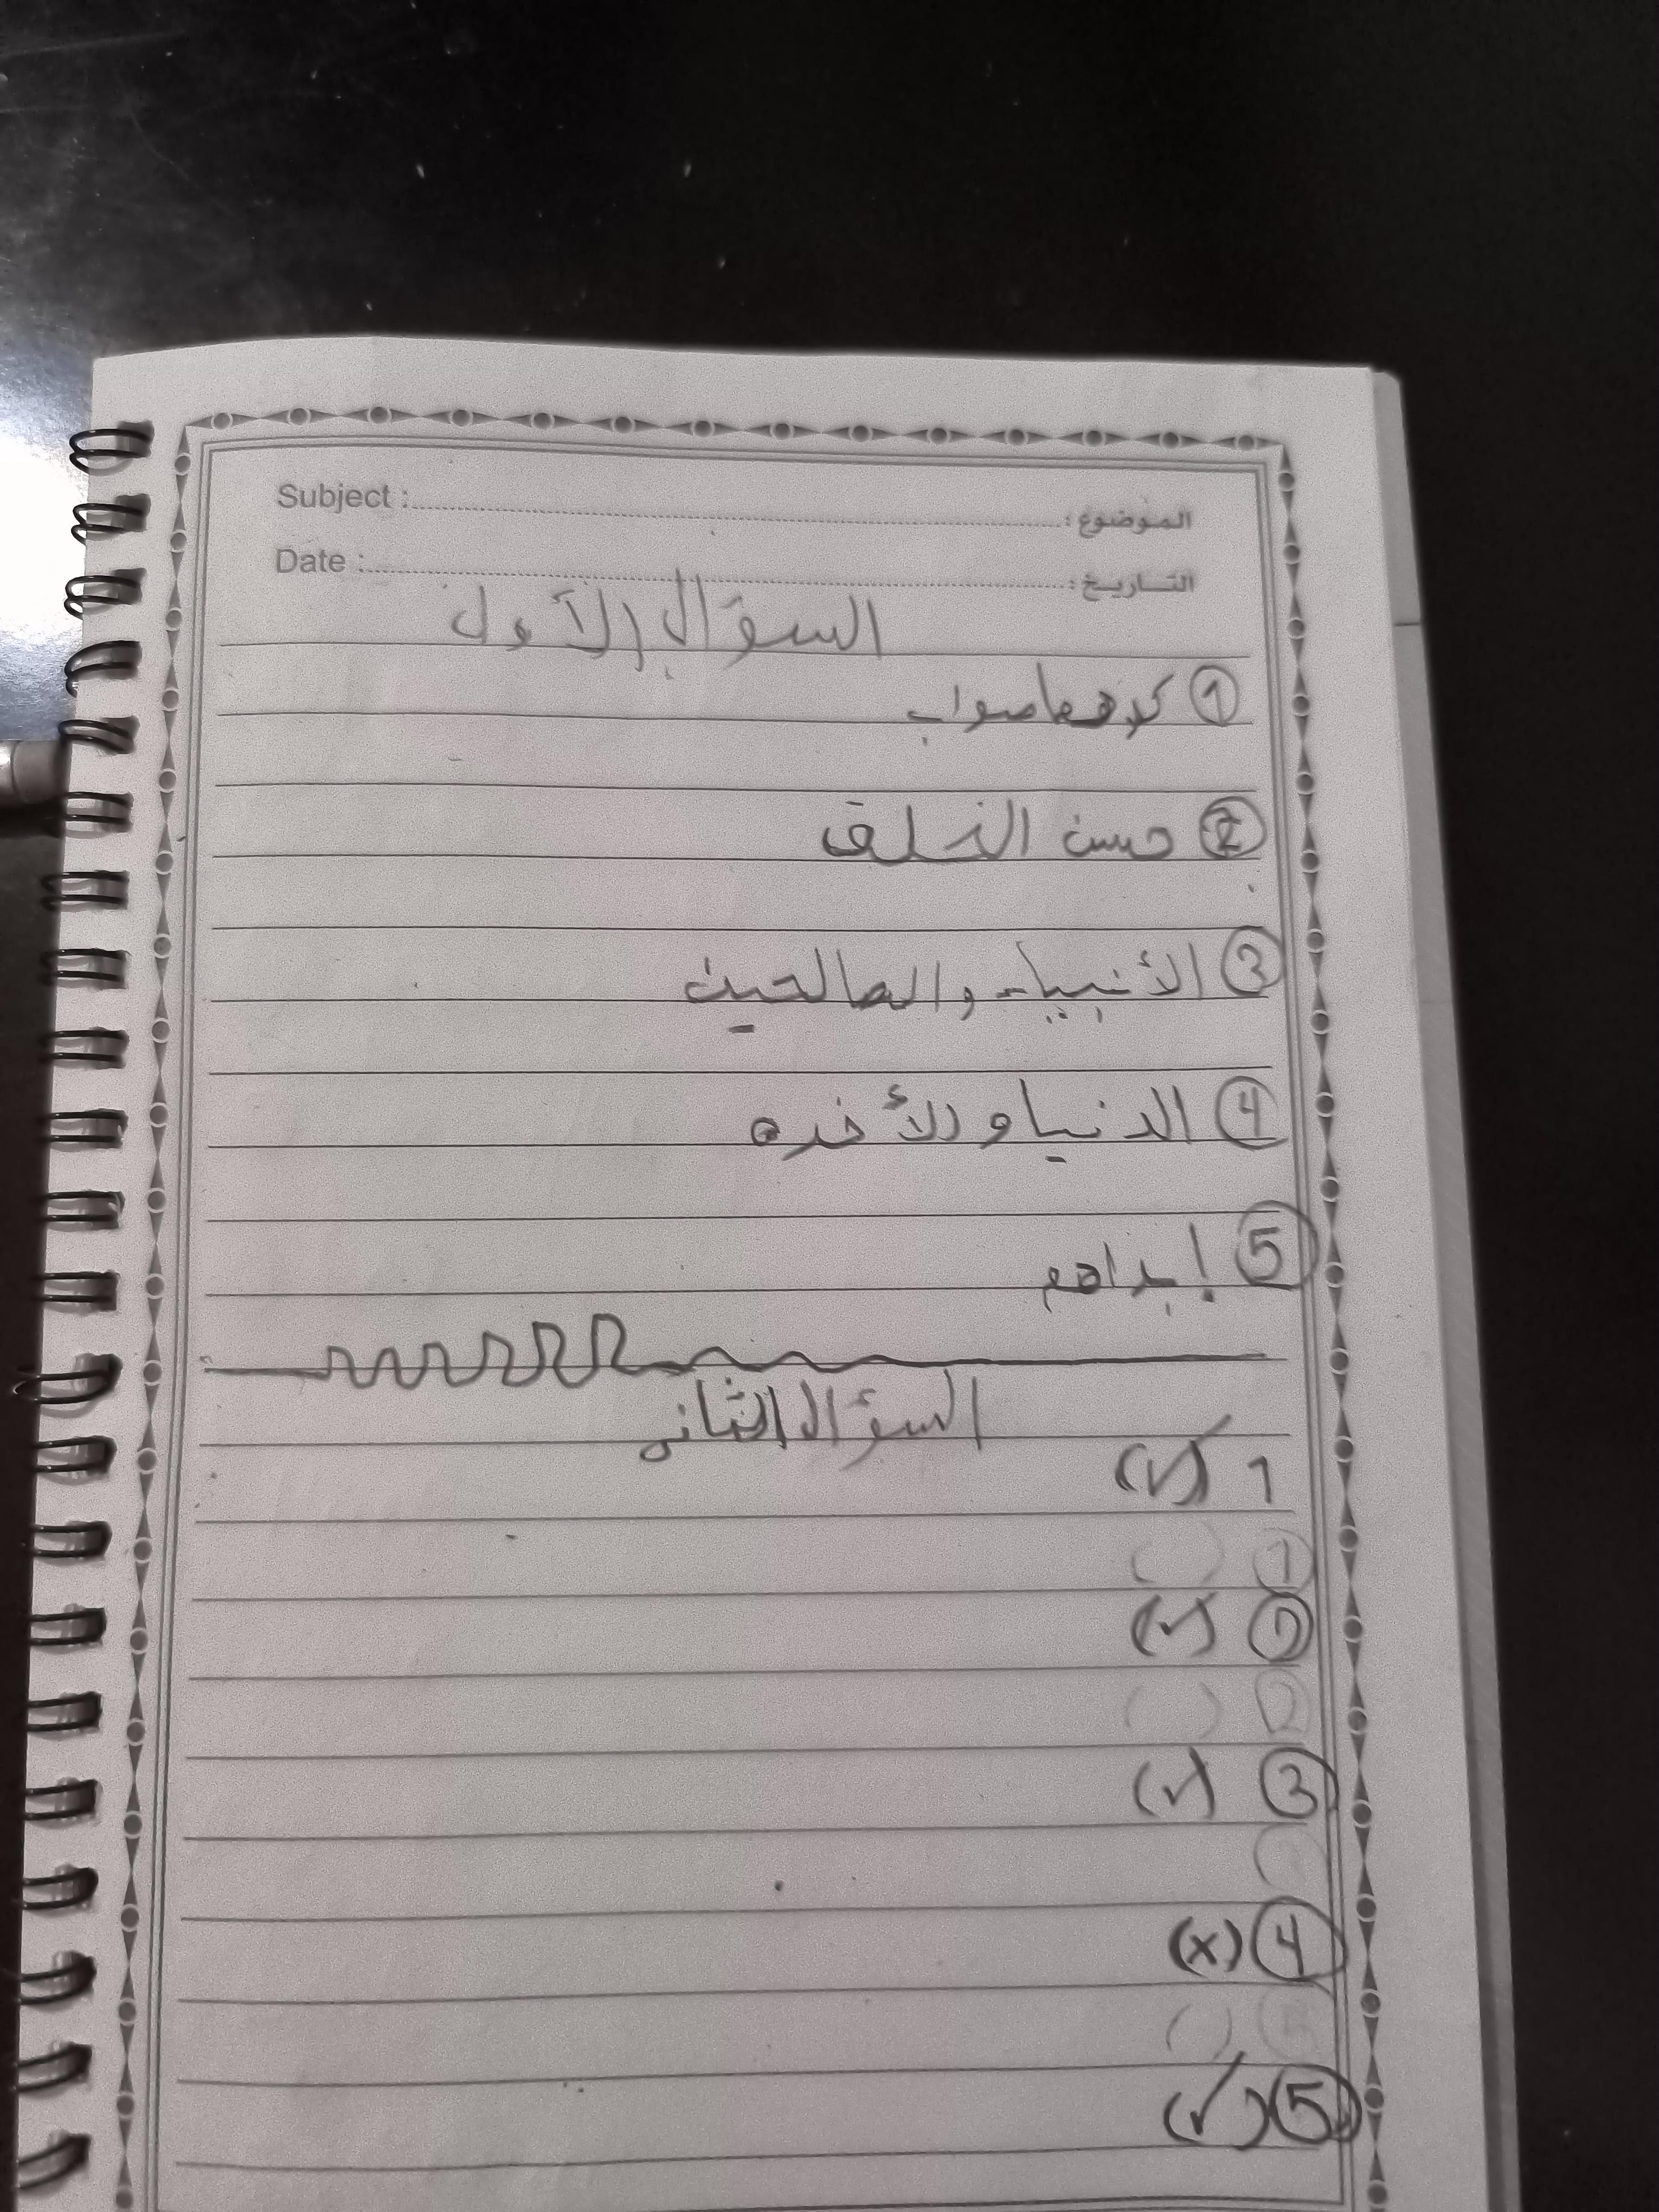 Subject : الموضوع:
Date : التاريخ:
السؤال الأول
① كلاهما صواب
② حسن الخلق
③ الأنبياء والصالحين
④ الدنيا والأخره
⑤ إبراهم
السؤال الثاني
1 (✓)
① ( )
② (✓)
② ( )
③ (✓)
④ (x)
⑤ ( )
⑤ (✓)